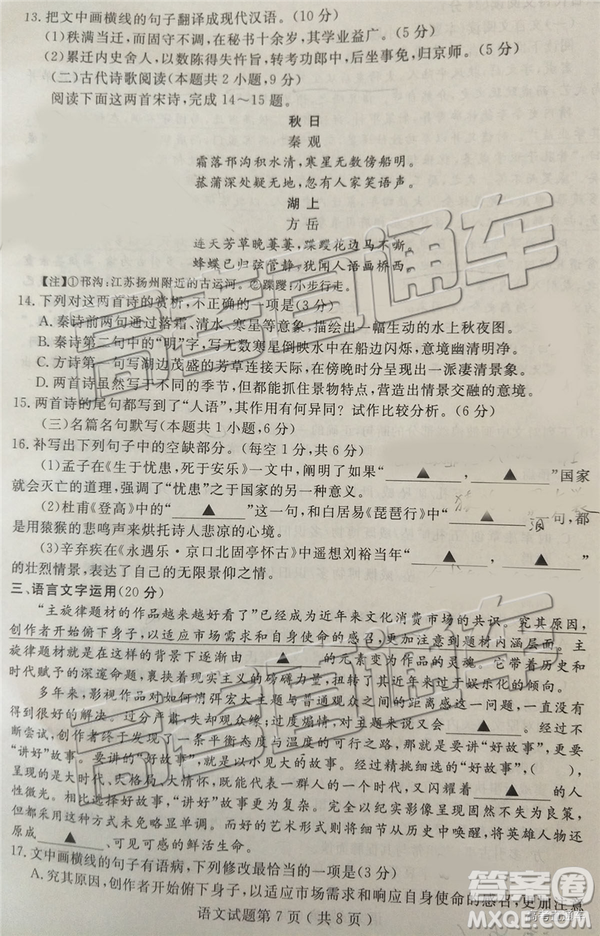 13.把文中画横线的句子翻译成现代汉语。(10分)
(1)秩满当迁,而固守不调,在秘书十余岁,其学业益广。(5分)
(2)累迁内史舍人,以数陈得失忤旨,转考功郎中,后坐事免,归京师。(5分)
(二)古代诗歌阅读(本题共2小题,9分)
阅读下面这两首宋诗,完成14~15题。
秋日
秦观
霜落邗沟积水清,寒星无数傍船明。
菰蒲深处疑无地,忽有人家笑语声。
湖上
方岳
连天芳草晚萋萋,蹀躞花边马不嘶。
蜂蝶已归弦管静,犹闻人语画桥西。
【注】①邗沟:江苏扬州附近的古运河。②蹀躞:小步行走。
14.下列对这两首诗的赏析,不正确的一项是(3分)
A.秦诗前两句通过落霜、清水、寒星等意象,描绘出一幅生动的水上秋夜图。
B.秦诗第二句中的“明”字,写无数寒星倒映在船边闪烁,形象生动,意境优美。
C.方诗第一句写湖边茂盛的芳草接连天际,在傍晚时分呈现出一派凄清景象。
D.两首诗虽然写于不同的季节,但都抓住景物特点,营造出情景交融的意境。
15.两首诗的尾句都写到了“人语”,其作用有何异同?试作比较分析。(6分)
(三)名篇名句默写(本题共1小题,6分)
16.补写出下列句子中的空缺部分。(每空1分,共6分)
(1)孟子在《生于忧患,死于安乐》一文中,阐明了如果“▲,▲”国家
就会灭亡的道理,强调了“忧患”之于国家的另一种意义。
(2)杜甫《登高》中的“▲”这一句,和白居易《琵琶行》中的“▲”句,都
是用猿猴的悲鸣声来烘托诗人悲凉的心境。
(3)辛弃疾在《永遇乐·京口北固亭怀古》中遥想刘裕当年“▲,▲”
的壮烈情景,表达了自己的无限景仰之情。
三、语言文字运用(20分)
“主旋律题材的作品越来越好看了”已经成为近年来文化消费市场的共识。究其原因,
创作者开始俯下身子,以适应市场需求和自身使命的感召,更加注意到题材内涵层面。主
旋律题材就是在这样的背景下逐渐由▲的元素变为作品的灵魂。它带着历史和
时代赋予的深沉主题,裹挟着现实主义的磅礴力量,扭转了其近年来过于娱乐化的倾向。
多年来,影视作品对如何弥弭宏大主题与普通观众之间的距离感这一问题,一直没有
得到很好的解决。过分平实,却失却观众缘;过度煽情,对观众来说又会▲。经过不
断尝试,创作者终于发现了一条平衡态度与温度的可行之路,那就是要“讲好”故事,更要
“讲好”故事。要讲的“好故事”,就是以小见大的故事。经过精挑细选的“好故事”,()。
“讲好”故事,
大的时代, 个性,又闪耀着▲的人
性微光。相比过去,创作手法更加丰富、完整。完全以纪实影像呈现固然不失为良策,
但却采用这种方式未免会略显单调。而好的艺术形式则可以从历史中唤醒,将英雄人物还
原成▲、可见可感的鲜活生命。
17.文中画横线的句子有语病,下列修改最恰当的一项是(3分)
A.究其原因,创作者开始俯下身子,以适应市场需求和响应自身使命的感召,更加注意
语文试题第7页(共8页)
答案圈